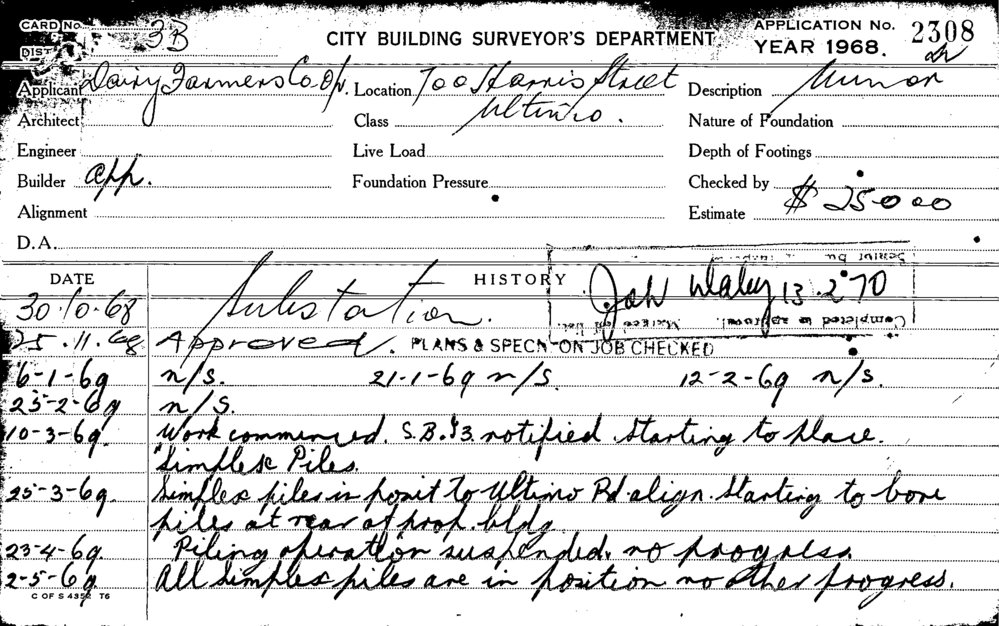 CARD No. 3B
CITY BUILDING SURVEYOR'S DEPARTMENT
APPLICATION No. 2308
DIST.
YEAR 1968.
Applicant Dairy Farmers Co. Op. Location 700 Harris Street Description Minor
Architect Class Ultimo. Nature of Foundation
Engineer Live Load Depth of Footings
Builder App. Foundation Pressure Checked by
Alignment Estimate $25000
D.A.
DATE HISTORY
13.2.70
30.10.68 Substation.
Completed as approved.
25.11.68 Approved. PLANS & SPECN ON JOB CHECKED
6-1-69 n/s. 21-1-69 n/s. 12-2-69 n/s.
25-2-69 n/s.
10-3-69 Work commenced. S.B.43. notified. Starting to place.
Simplex Piles.
25-3-69. Simplex piles in posit to Ultimo Rd align. Starting to bore
piles at rear of prop. bldg.
23-4-69. Piling operation suspended. no progress.
2-5-69. All Simplex piles are in position no other progress.
C OF S 4352 T6